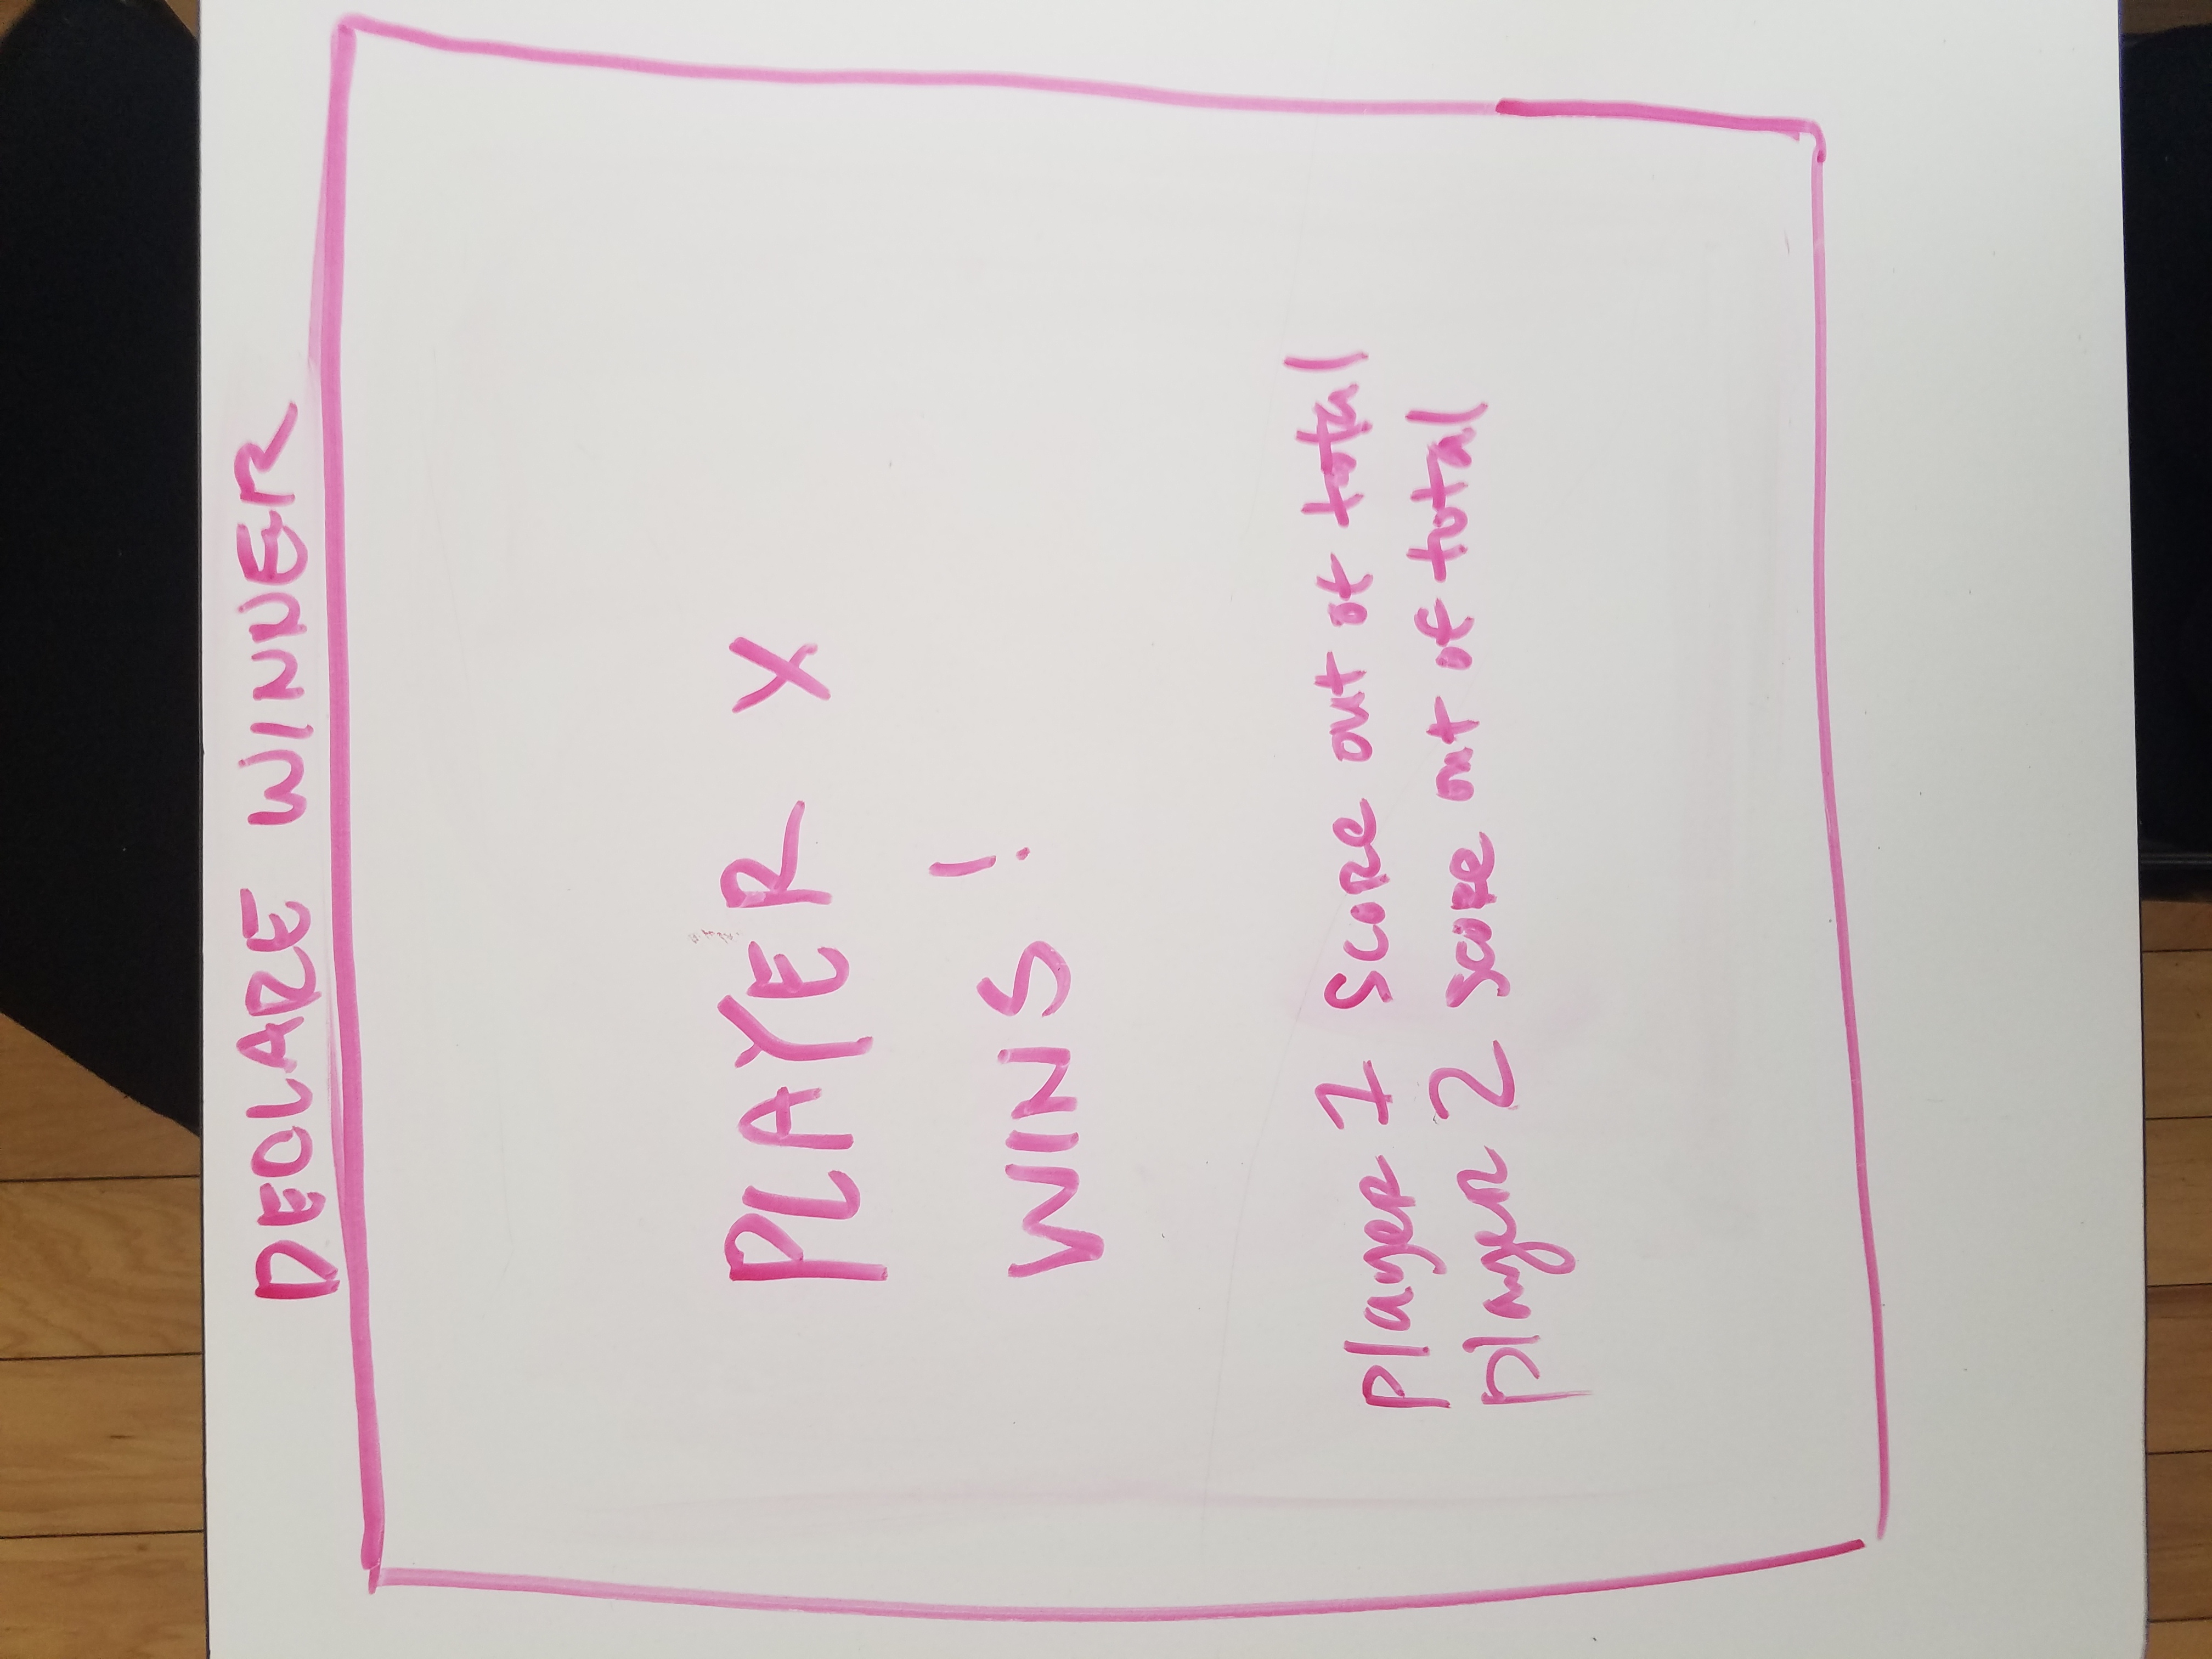 DECLARE WINNER
PLAYER X
WINS!
player 1 score out of total
player 2 score out of total